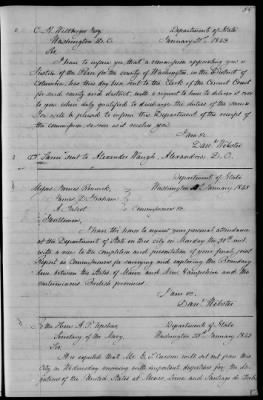 Department of State
Washington D.C. January 21st 1843
Sir,
I have to inform you that a commission appointing you a
Justice of the Peace for the county of Washington, in the District of
Columbia, has this day been sent to the Clerk of the Circuit Court
for said county and district, with a request to have it deliver
to you when duly qualified to discharge the duties of the same.
You will be pleased to inform this Department of the receipt of
the commission as soon as it reaches you.
I am &c.
Danl Webster
Same sent to Alexander Waugh, Alexandria, D.C.
Department of State
Washington January 1843
James
James D. Graham
A. Talcott Commissioners &c.
Gentlemen,
I have the honor to request your personal attendance
at the Department of State in this city on Monday the 30th
with a view to the completion and presentation of your final
Report as Commissioners for surveying and exploring the Boundary
line between the States of Maine and New Hampshire and the
British provinces.
I am &c.
Danl Webster
To the Hon. A. P. Upshur Department of State
Secretary of the Navy, Washington January 1843
Sir,
It is expected that Mr. will set out from this
City on Wednesday morning with important dispatches for the Le-
gations of the United States at Lima and Santiago de